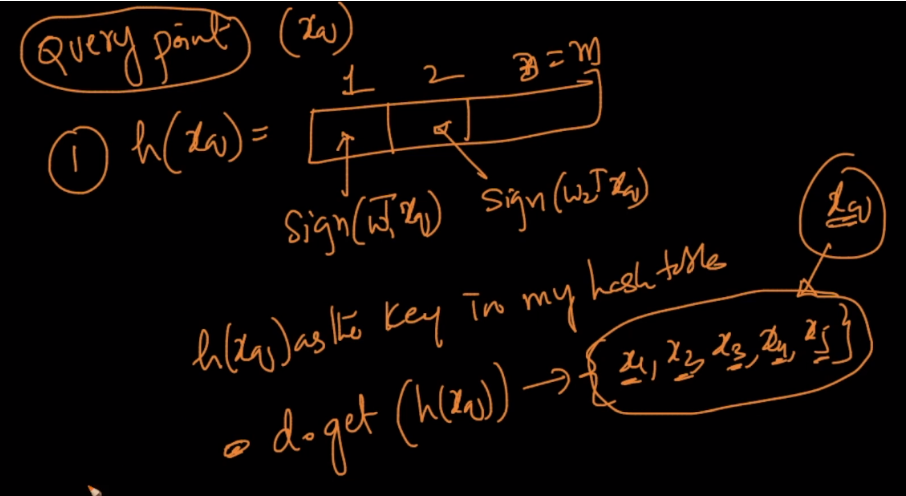 Query point (xq)
1 2 = m
① h(xq) =
Sign(w₁ᵀxq) Sign(w₂ᵀxq)
xq
h(xq) as the key in my hash table
d.get (h(xq)) → {x₁, x₂, x₃, x₄, x₅}